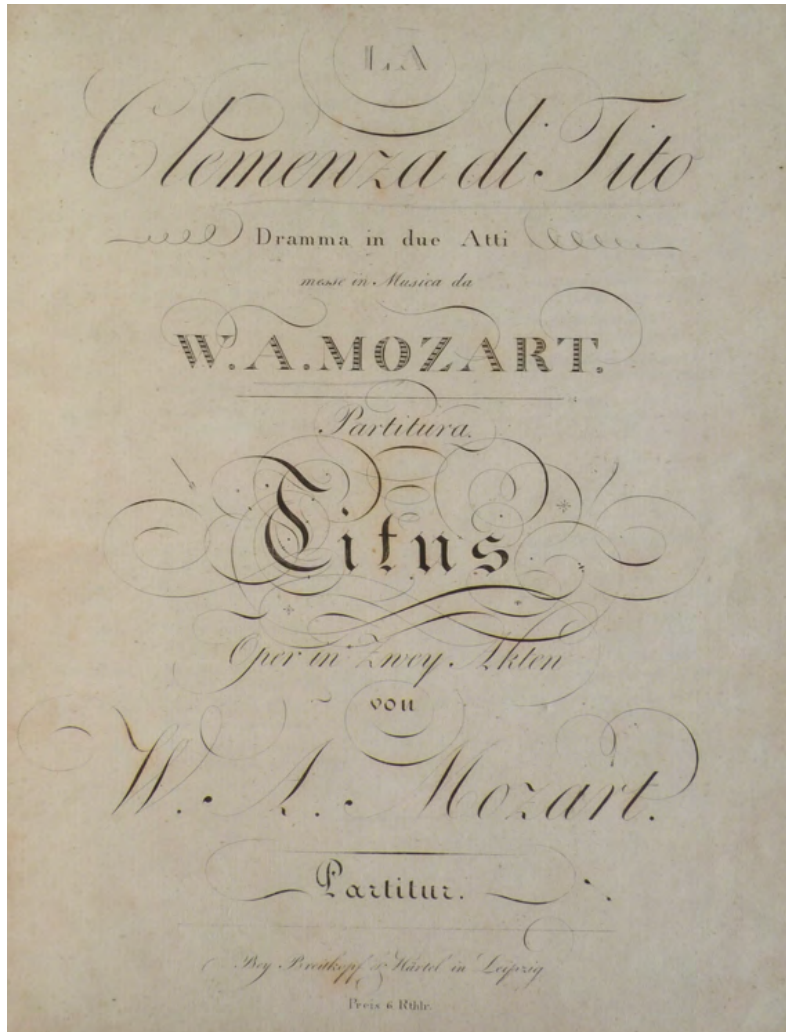 LA
Clemenza di Tito
Dramma in due Atti
messe in Musica da
W. A. MOZART.
Partitura.
Titus
Oper in zwey Akten
von
W. A. Mozart.
Partitur.
Bey Breitkopf & Härtel in Leipzig
Preis 6 Rthlr.